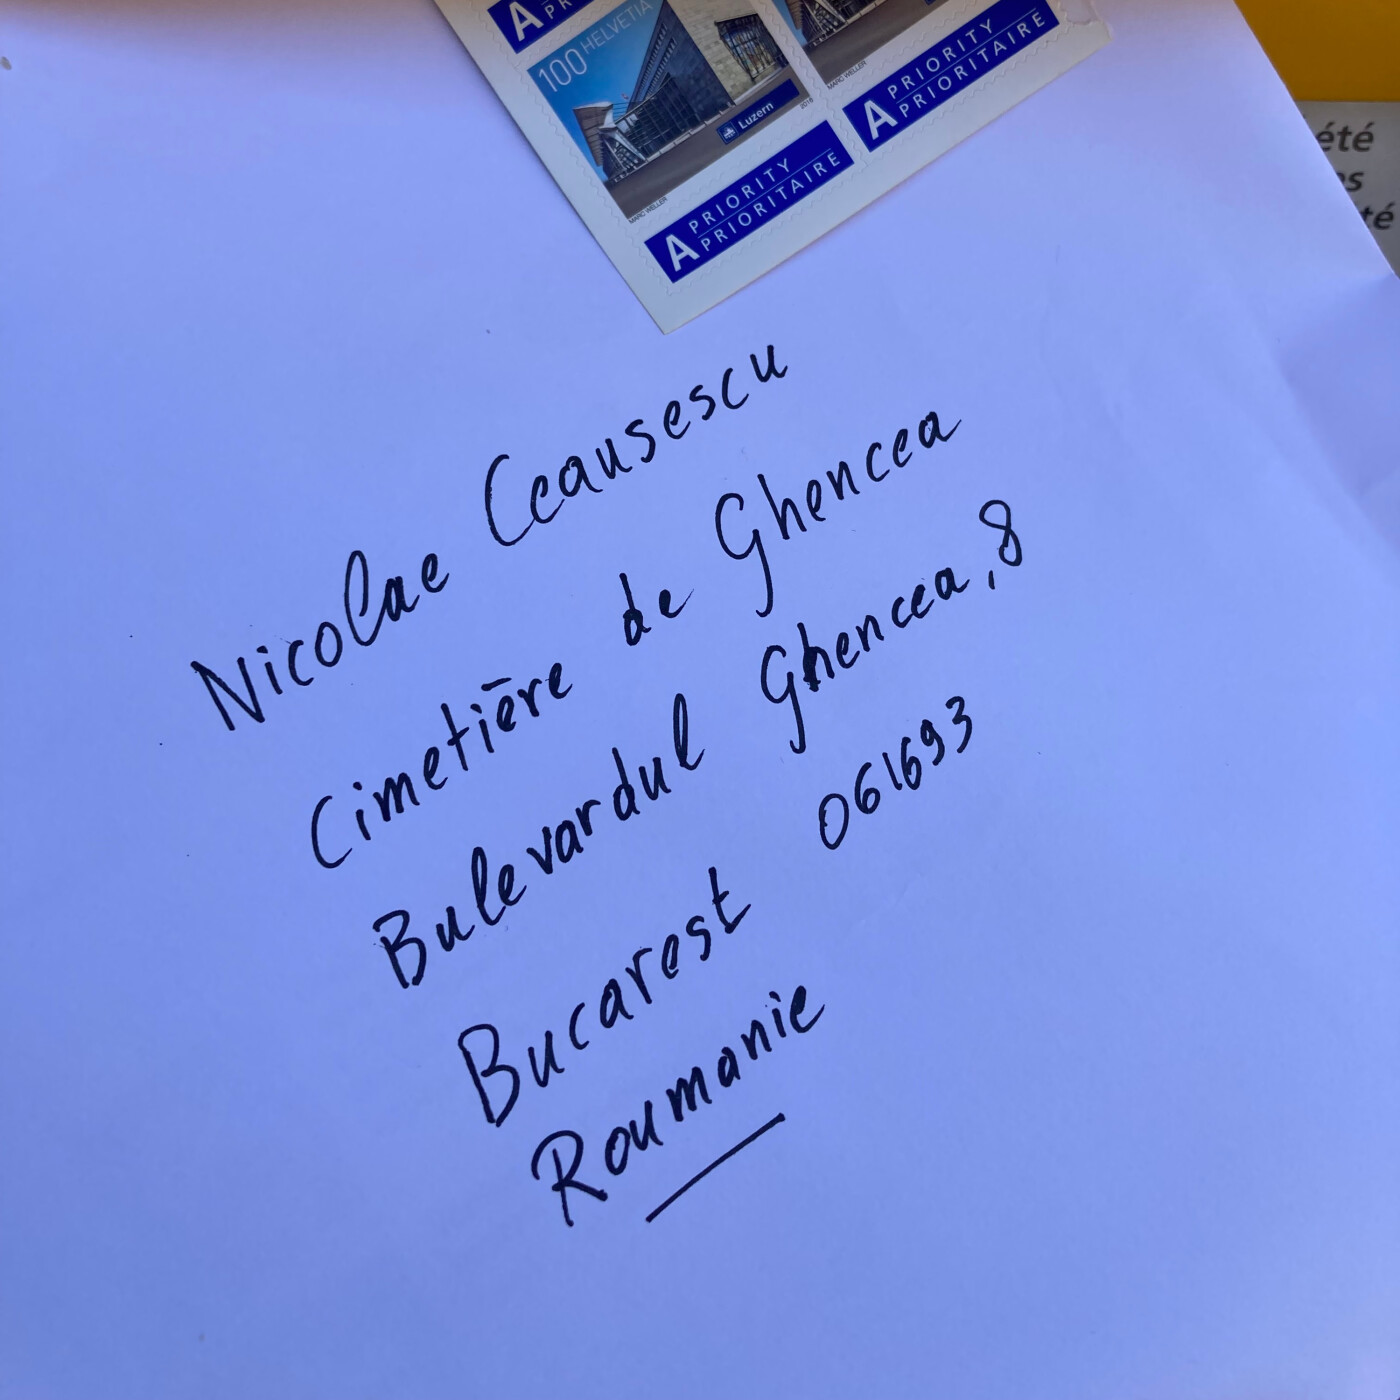 A PR
100 HELVETIA
Luzern
2016
MARC WELLER
A PRIORITY
PRIORITAIRE
MARC WELLER
A PRIORITY
PRIORITAIRE
été
es
té
Nicolae Ceausescu
Cimetière de Ghencea
Bulevardul Ghencea, 8
Bucarest 061693
Roumanie